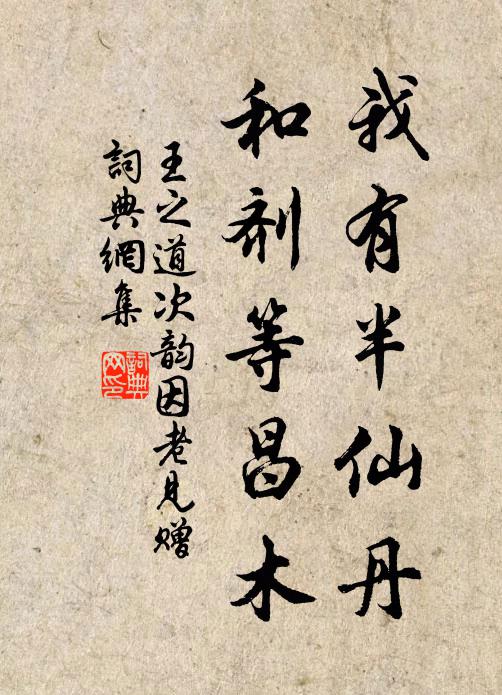 我有半仙丹
和剂等昌木
王之道次韵因老见赠
詞典網集
詞典网印